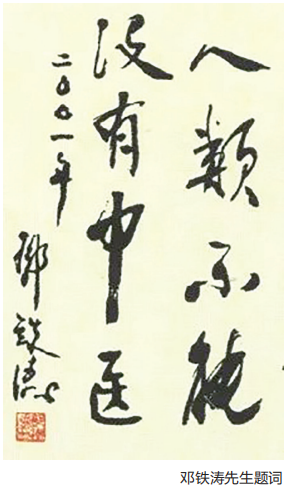 人類不能
没有中医
二〇〇一年
鄧鉄涛
邓铁涛先生题词